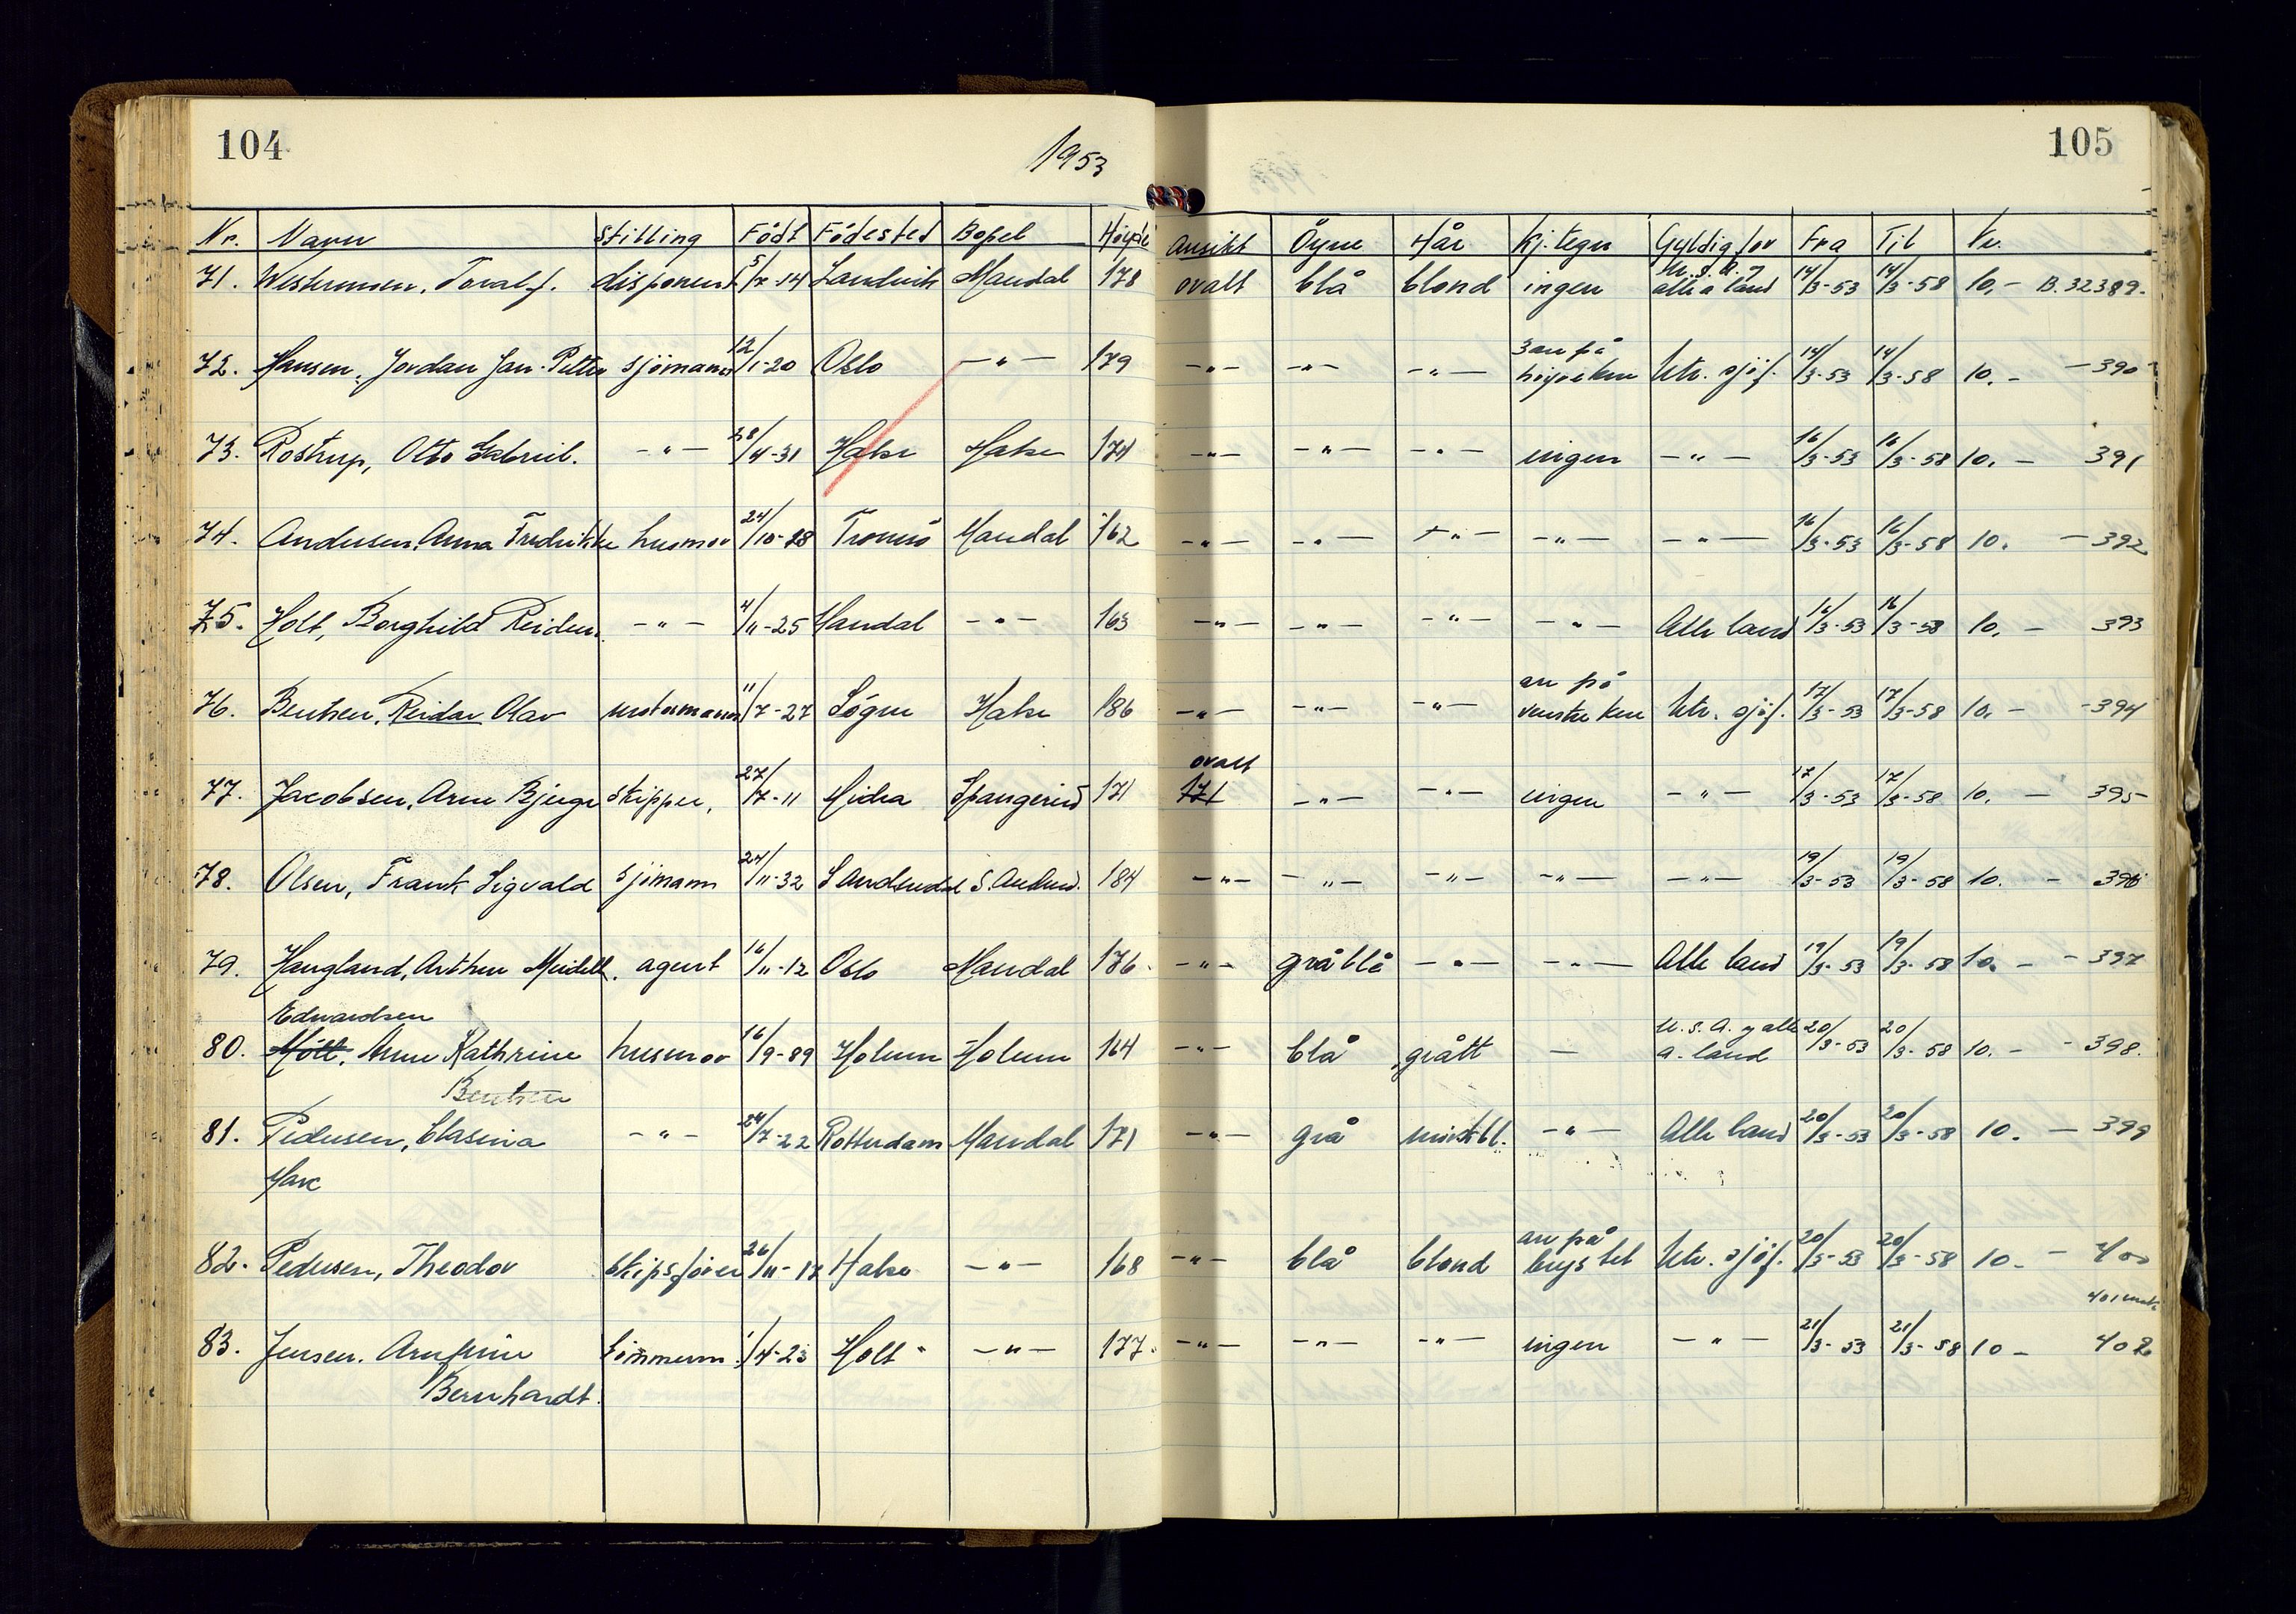 104
1953
105
Nr. Navn Stilling Födt Födested Bopel Höyde Ansikt Öyne Hår Kj.tegn Gyldig for Fra Til Kr.
U.S.A. og
71. Westermoen, Toralf. disponent 5/7-14 Landvik Mandal 178 ovalt blå blond ingen alle a land 14/3-53 14/3-58 10,- B.32389.
3 arr på
72. Hansen, Jordan Jan-Petter sjömann 12/1-20 Oslo -"- 179 -"- -"- -"- höyre kne Utr. sjöf. 14/3-53 14/3-58 10.- -390
73. Rostrup, Otto Gabriel. -"- 28/4-31 Halse Halse 174 -"- -"- -"- ingen -"- 16/3-53 16/3-58 10.- 391
74. Andersen, Anna Fredrikke husmor 24/10-28 Tromsö Mandal 162 -"- -"- -"- -"- -"- 16/3-53 16/3-58 10. -392
75. Holt, Borghild Reidun. -"- 4/11-25 Mandal -"- 163 -"- -"- -"- -"- Alle land 16/3-53 16/3-58 10.- 393
arr på
76. Bentsen, Reidar Olav motormann 11/7-27 Sögne Halse 186 -"- -"- -"- venstre kne Utr. sjöf. 17/3-53 17/3-58 10.- -394
ovalt
77. Jacobsen, Arne Bjerge skipper, 27/7-11 Hidra Spangereid 171 171 -"- -"- ingen -"- 17/3-53 17/3-58 10. - 395
78. Olsen, Frank Sigvald sjömann 24/11-32 S Audnedal S. Audned. 184 -"- -"- -"- -"- -"- 19/3-53 19/3-58 10. - 396
79. Haugland, Arthur Meidell. agent 16/11-12 Oslo Mandal 176. -"- gråblå -"- -"- Alle land 19/3-53 19/3-58 10.- -397
Edvardsen U.S.A. og alle
80. Möll, Anne Kathrine husmor 16/9-89 Holum Holum 164 -"- blå grått - a. land 20/3-53 20/3-58 10.- -398.
Bentsen
81. Pedersen, Clasina -"- 24/7-22 Rotterdam Mandal 171 -"- grå mörkbl. -"- Alle land 20/3-53 20/3-58 10. - 399
arr på
82. Pedersen, Theodor Skipsförer 26/11-17 Halse -"- 168 -"- blå blond brystet Utr. sjöf. 20/3-53 20/3-58 10.- 400
401 mak.
83. Jensen. Arnfinn tömmerm. 1/4-23 Holt -"- 177. -"- -"- -"- ingen -"- 21/3-53 21/3-58 10- 402
Bernhardt.